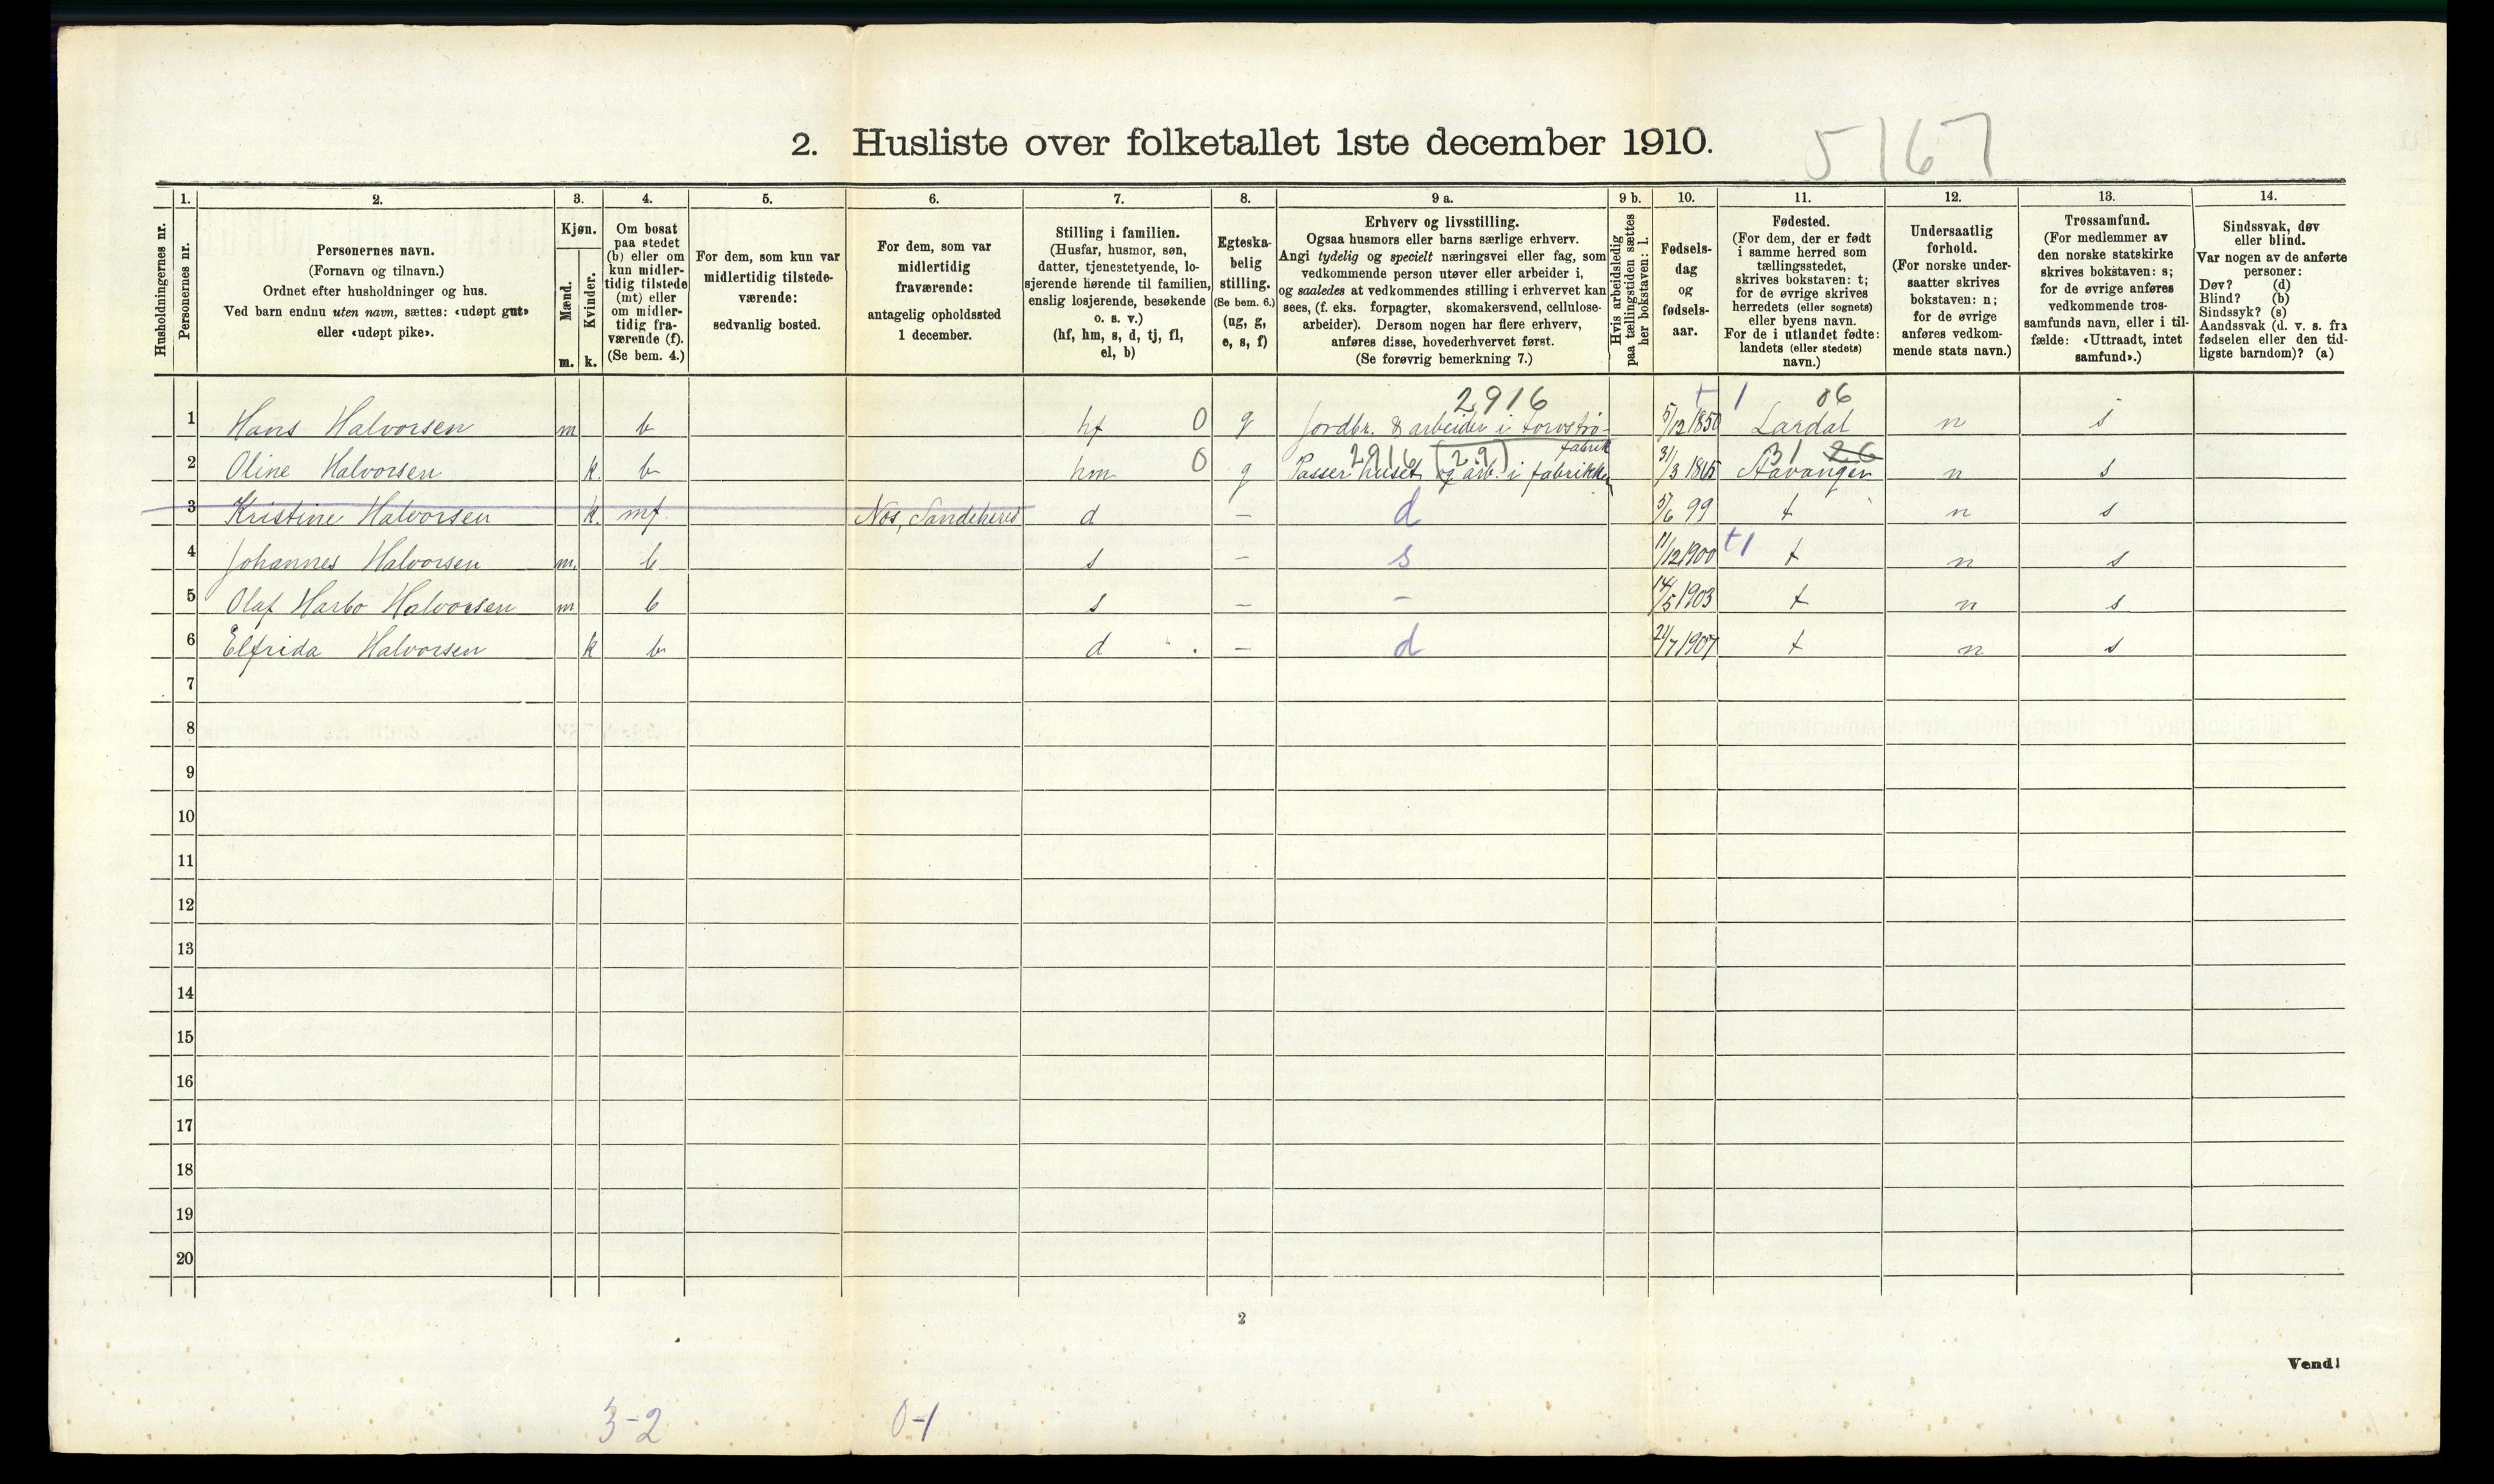 2. Husliste over folketallet 1ste december 1910.
5167
Husholdningernes nr.
1.
Personernes nr.
2.
Personernes navn.
(Fornavn og tilnavn.)
Ordnet efter husholdninger og hus.
Ved barn endnu uten navn, sættes: «udøpt gut»
eller «udøpt pike».
3.
Kjøn.
Mænd.
m.
Kvinder.
k.
4.
Om bosat
paa stedet
(b) eller om
kun midler-
tidig tilstede
(mt) eller
om midler-
tidig fra-
værende (f).
(Se bem. 4.)
5.
For dem, som kun var
midlertidig tilstede-
værende:
sedvanlig bosted.
6.
For dem, som var
midlertidig
fraværende:
antagelig opholdssted
1 december.
7.
Stilling i familien.
(Husfar, husmor, søn,
datter, tjenestetyende, lo-
sjerende hørende til familien,
enslig losjerende, besøkende
o. s. v.)
(hf, hm, s, d, tj, fl,
el, b)
8.
Egteska-
belig
stilling.
(Se bem. 6.)
(ug, g,
e, s, f)
9 a.
Erhverv og livsstilling.
Ogsaa husmors eller barns særlige erhverv.
Angi tydelig og specielt næringsvei eller fag, som
vedkommende person utøver eller arbeider i,
og saaledes at vedkommendes stilling i erhvervet kan
sees, (f. eks. forpagter, skomakersvend, cellulose-
arbeider). Dersom nogen har flere erhverv,
anføres disse, hovederhvervet først.
(Se forøvrig bemerkning 7.)
9 b.
Hvis arbeidsledig
paa tællingstiden sættes
her bokstaven: l.
10.
Fødsels-
dag
og
fødsels-
aar.
11.
Fødested.
(For dem, der er født
i samme herred som
tællingsstedet,
skrives bokstaven: t;
for de øvrige skrives
herredets (eller sognets)
eller byens navn.
For de i utlandet fødte:
landets (eller stedets)
navn.)
12.
Undersaatlig
forhold.
(For norske under-
saatter skrives
bokstaven: n;
for de øvrige
anføres vedkom-
mende stats navn.)
13.
Trossamfund.
(For medlemmer av
den norske statskirke
skrives bokstaven: s;
for de øvrige anføres
vedkommende tros-
samfunds navn, eller i til-
fælde: «Uttraadt, intet
samfund».)
14.
Sindssvak, døv
eller blind.
Var nogen av de anførte
personer:
Døv? (d)
Blind? (b)
Sindssyk? (s)
Aandssvak (d. v. s. fra
fødselen eller den tid-
ligste barndom)? (a)
2916 t 1 06
1 Hans Halvorsen m b hf 0 g Jordbr. & arbeider i torvstrø- 5/12 1850 Lardal n s
fabrik
2916 (29) 31 26
2 Oline Halvorsen k. b hm 0 g Passer huset og arb. i fabrikken 31/3 1865 n s
3 Kristine Halvorsen k. mf. Nos, Sandehered d – d 5/6 99 t n s
4 Johannes Halvorsen m. b s – s 11/12 1900 t1 t n s
5 Olaf Harbo Halvorsen m b s – – 14/5 1903 t n s
6 Elfrida Halvorsen k b d – d 21/7 1907 t n s
7
8
9
10
11
12
13
14
15
16
17
18
19
20
2
Vend!
3-2 0-1